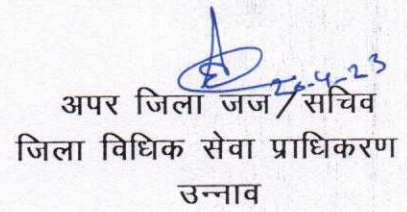 26-4-23
अपर जिला जज/सचिव
जिला विधिक सेवा प्राधिकरण
उन्नाव